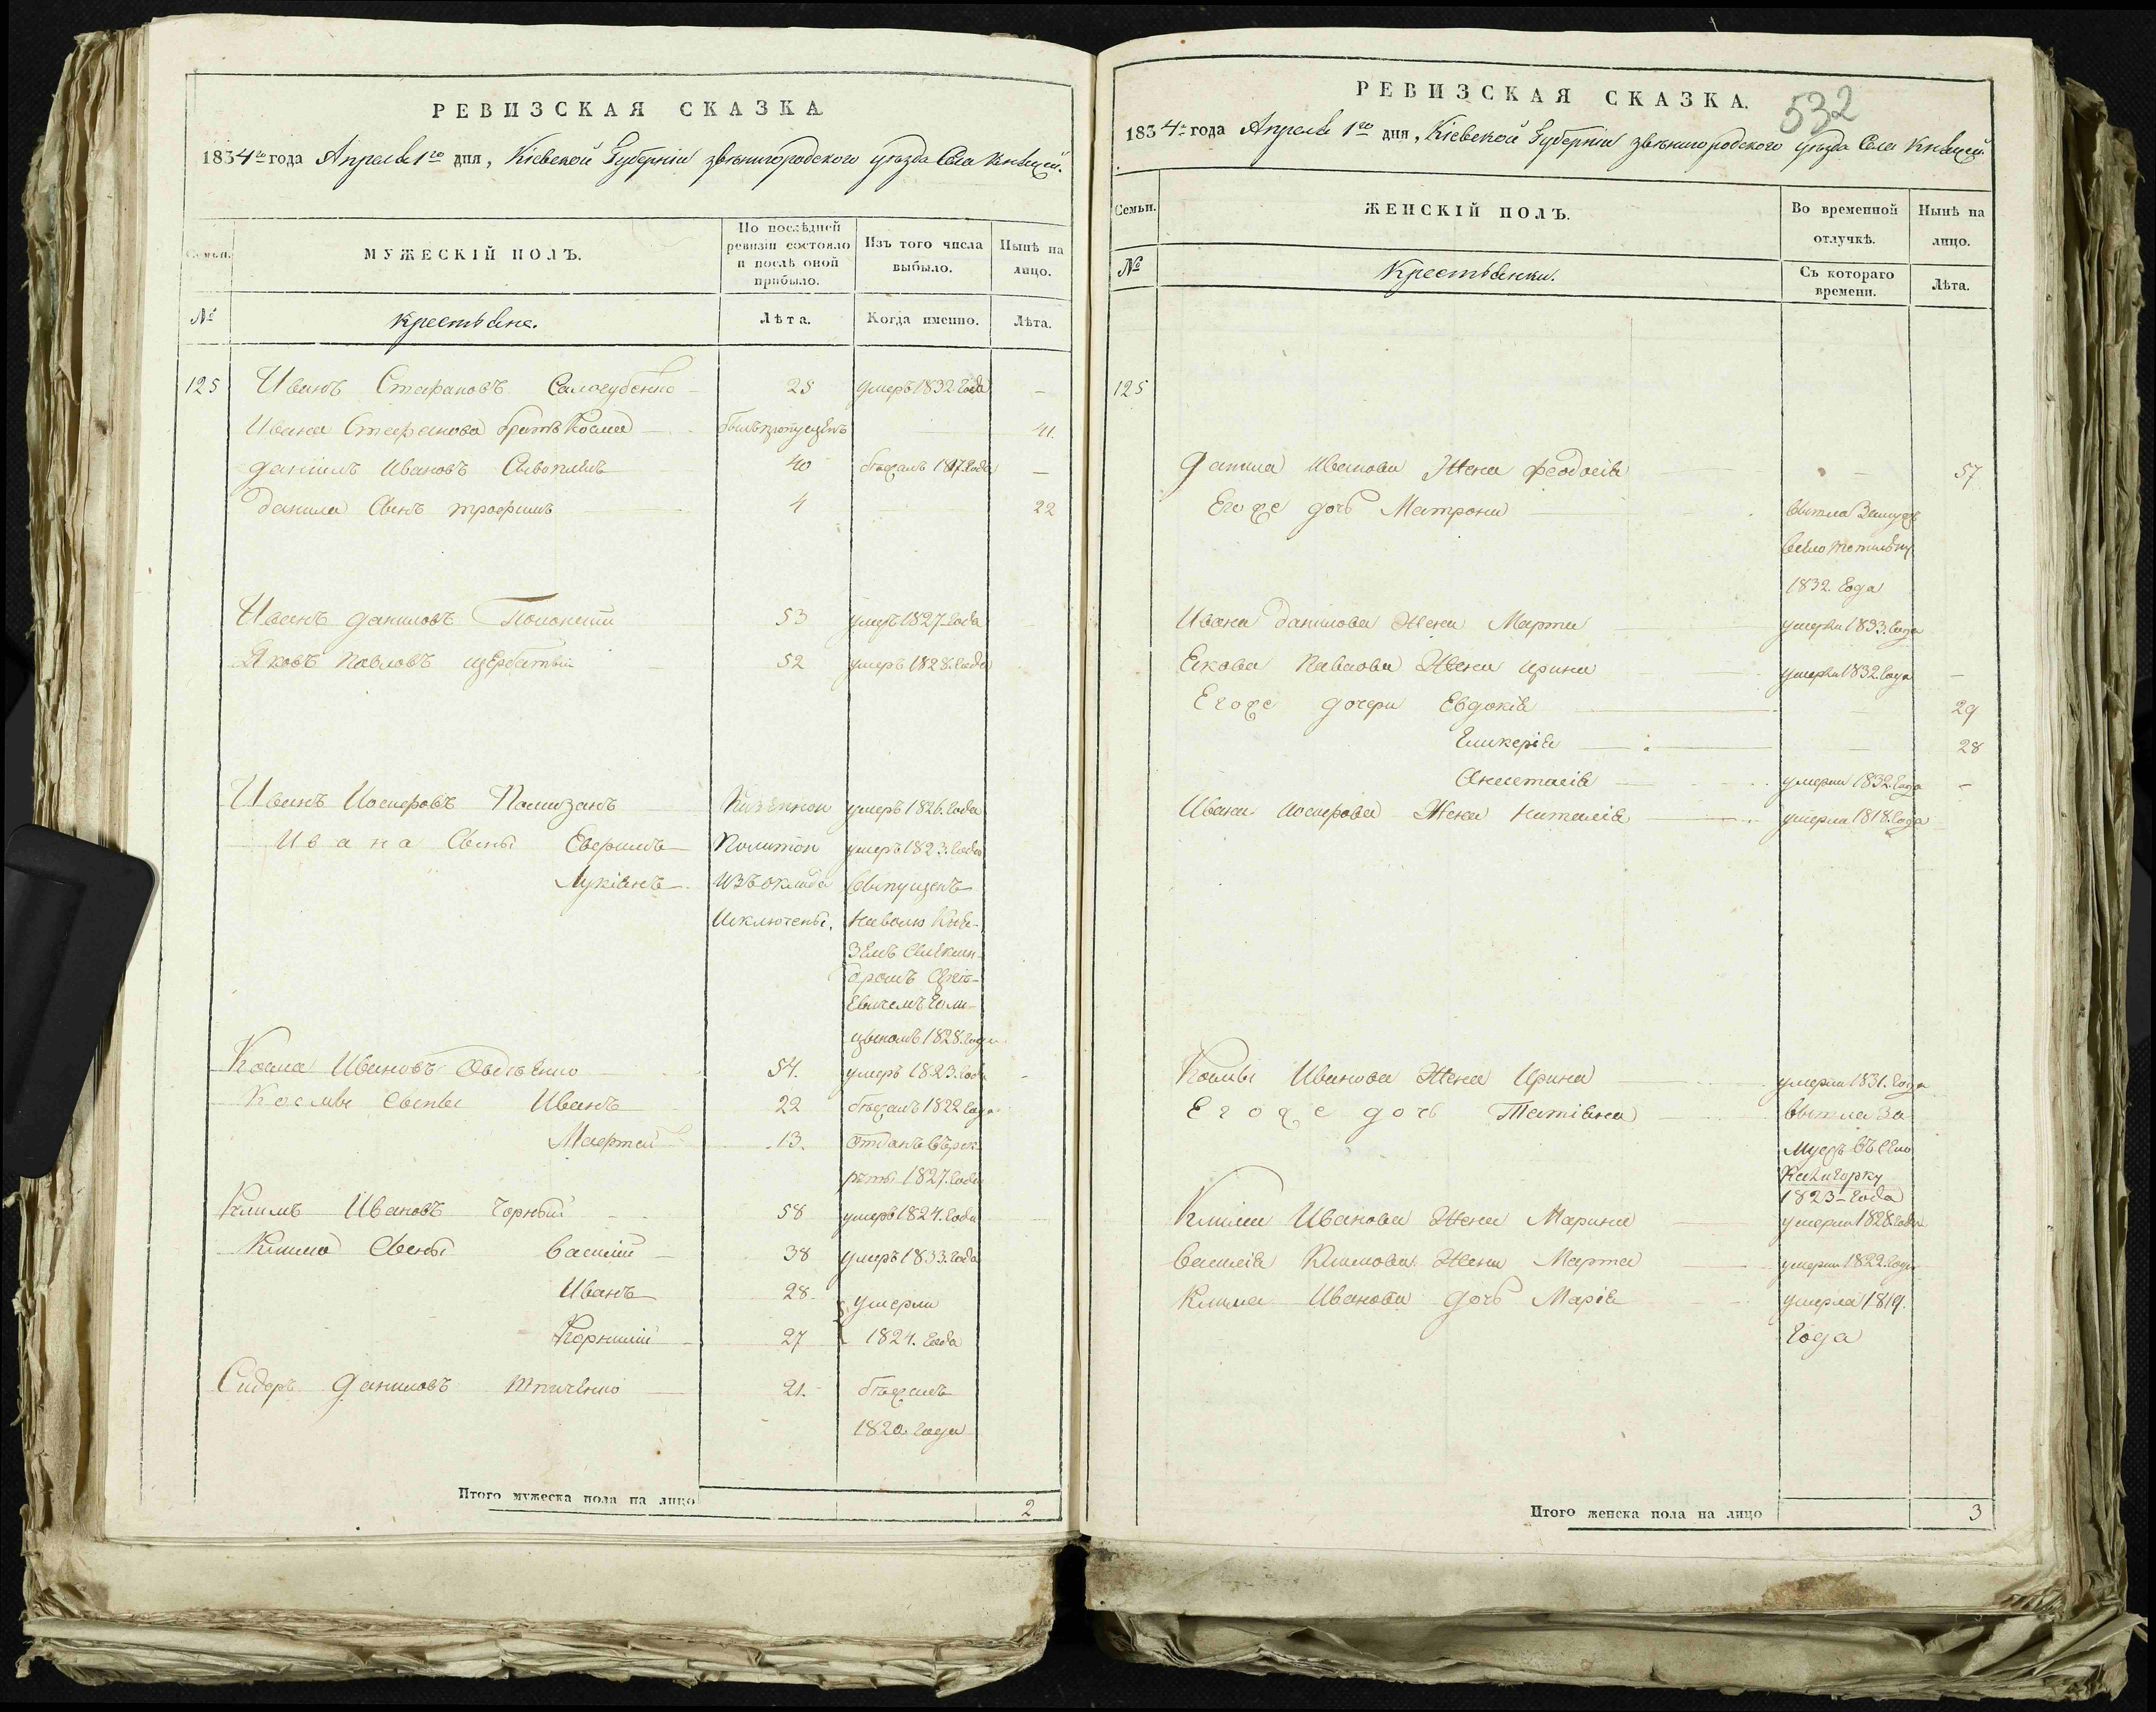 РЕВИЗСКАЯ СКАЗКА
1834го года Апреля 1го дня, Кіевской Губерніи звѣнигородского уѣзда Села Княжей.
Семьи.
МУЖЕСКІЙ ПОЛЪ.
По послѣдней ревизіи состояло и послѣ оной прибыло.
Изъ того числа выбыло.
Нынѣ на лицо.
№
Крестьяне.
Лѣта.
Когда именно.
Лѣта.
125 Иванъ Стефановъ Самогубенко 25 умеръ 1832 года —
Ивана Стефанова братъ Косма былъ пропущенъ 41.
Данилъ Ивановъ 40 бѣжалъ года —
Данила Сынъ Трофимъ 4 22
Иванъ Даниловъ 53 умеръ 1827. года
Яковъ Павловъ щербатый 52 умеръ 1828. года
Иванъ Иосифовъ умеръ 1826. года
Ивана Сыны умеръ 1823. года
Лукіянъ изъ оклада выпущенъ
Исключены. на волю Кня-
земъ Алексан-
дромъ
1828. года
Косма Ивановъ 54. умеръ 1823. года
Космы Сыны Иванъ 22 бѣжалъ 1822 года
13. отданъ въ рек-
руты 1827. года
Климъ Ивановъ Чорный 58 умеръ 1824. года
Клима Сыны Василій 38 умеръ 1833. года
Иванъ 28. умерли
Корнилій 27 1824. года
Сидоръ Даниловъ 21. бѣжалъ
1820. года
Итого мужеска пола на лицо 2
РЕВИЗСКАЯ СКАЗКА.
532
1834го года Апреля 1го дня, Кіевской Губерніи звѣнигородского уѣзда Села Княжей.
Семьи.
ЖЕНСКІЙ ПОЛЪ.
Во временной отлучкѣ.
Нынѣ на лицо.
№
Крестьянки.
Съ котораго времени.
Лѣта.
125
Данила Иванова Жена Феодосія — 57
Егоже дочь Матрона вышла Замужъ
1832. года
Ивана Данилова Жена Марта умерла 1833. года
Якова Павлова Жена Ирина умерла 1832. года —
Егоже дочери Евдокія — 29
Гликерія — 28
Анастасія умерла 1832. года —
Ивана Иосифова Жена Наталія умерла 1818. года
Космы Иванова Жена Ирина умерла 1831. года
Егоже дочь Татіяна вышла за
мужъ въ село
1823 года
Клима Иванова Жена Марина умерла 1828. года
Василія Климова Жена Марта умерла 1822. года
Клима Иванова дочь Марія умерла 1819.
года
Итого женска пола на лицо 3